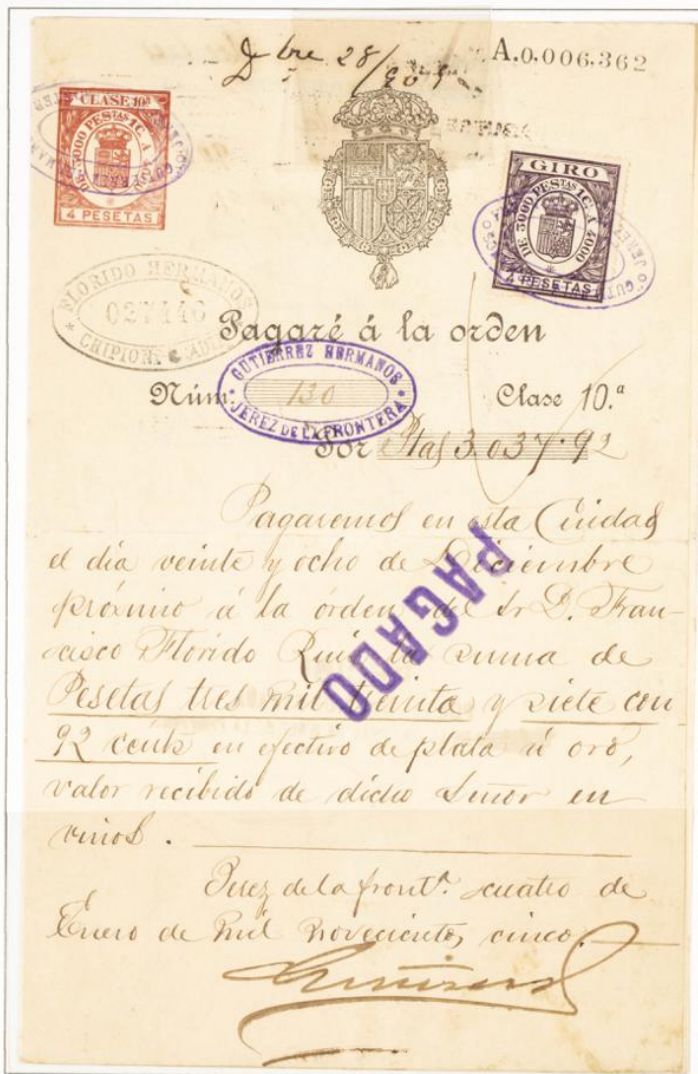 Dbre 28/905
A.0.006.362
CLASE 10ª
DE 3000 PESTAS 1C. A
4 PESETAS
GIRO
DE 3000 PESTAS 1C. A 4000
4 PESETAS
FLORIDO HERMANOS
027446
CHIPIONA
Pagaré á la orden
GUTIERREZ HERMANOS
Núm. 130 Clase 10.ª
JEREZ DE LA FRONTERA
Por Ptas 3.037.92
Pagaremos en esta Ciudad
el dia veinte y ocho de Diciembre
próximo á la órden del Sr D. Fran-
cisco Florido Ruiz la suma de
Pesetas tres mil treinta y siete con
92 cénts en efectivo de plata ú oro,
valor recibido de dicho Señor en
vinos.
PAGADO
Jerez de la frontª. cuatro de
Enero de mil novecientos cinco.